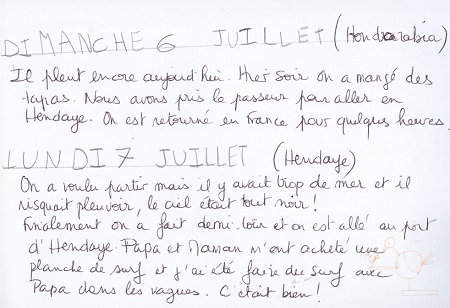 DIMANCHE 6 JUILLET (Hondarabia)
Il pleut encore aujourd'hui. Hier soir on a mangé des
tapas. Nous avons pris le passeur pour aller en
Hendaye. On est retourné en France pour quelques heures.
LUNDI 7 JUILLET (Hendaye)
On a voulu partir mais il y avait trop de mer et il
risquait pleuvoir, le ciel était tout noir!
Finalement on a fait demi-tour et on est allé au port
d'Hendaye. Papa et Maman m'ont acheté une
planche de surf et j'ai été faire du surf avec
Papa dans les vagues. C'était bien!